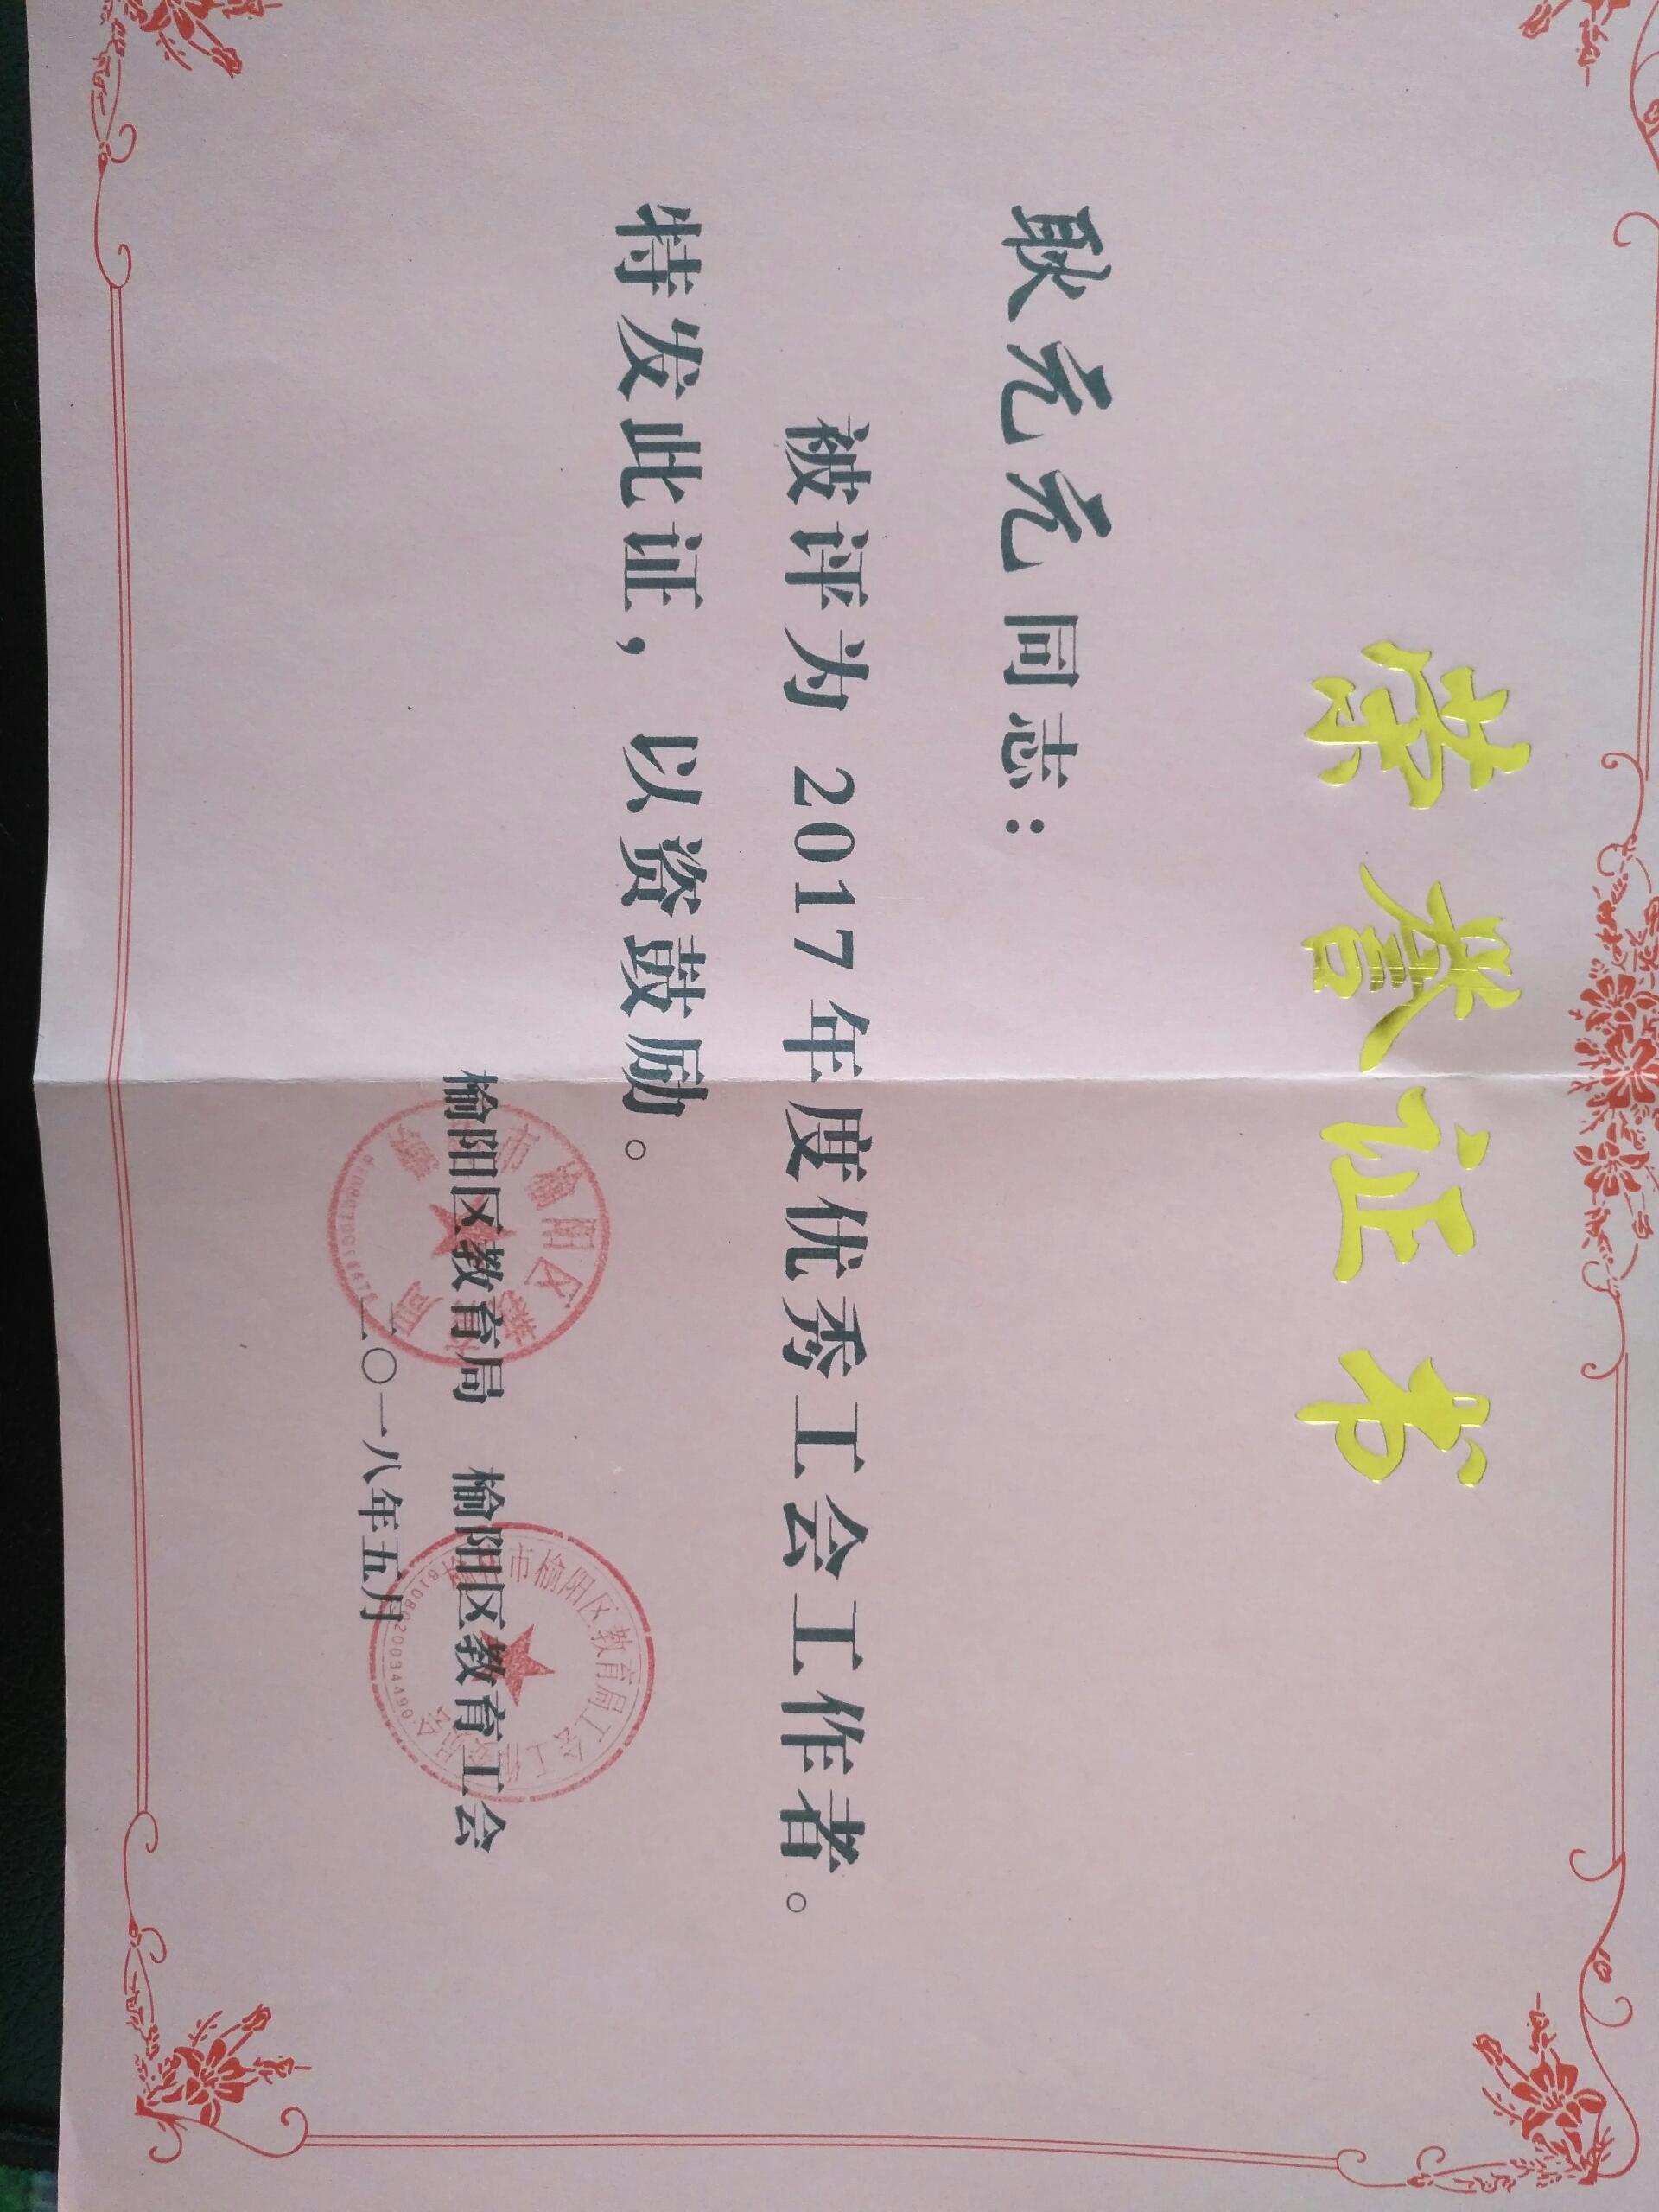 荣誉证书
耿元元同志：
被评为2017年度优秀工会工作者。
特发此证，以资鼓励。
榆阳区教育局 榆阳区教育工会
二〇一八年五月
市榆阳区教育局
市榆阳区教育局工会工作委员会
6108020034490